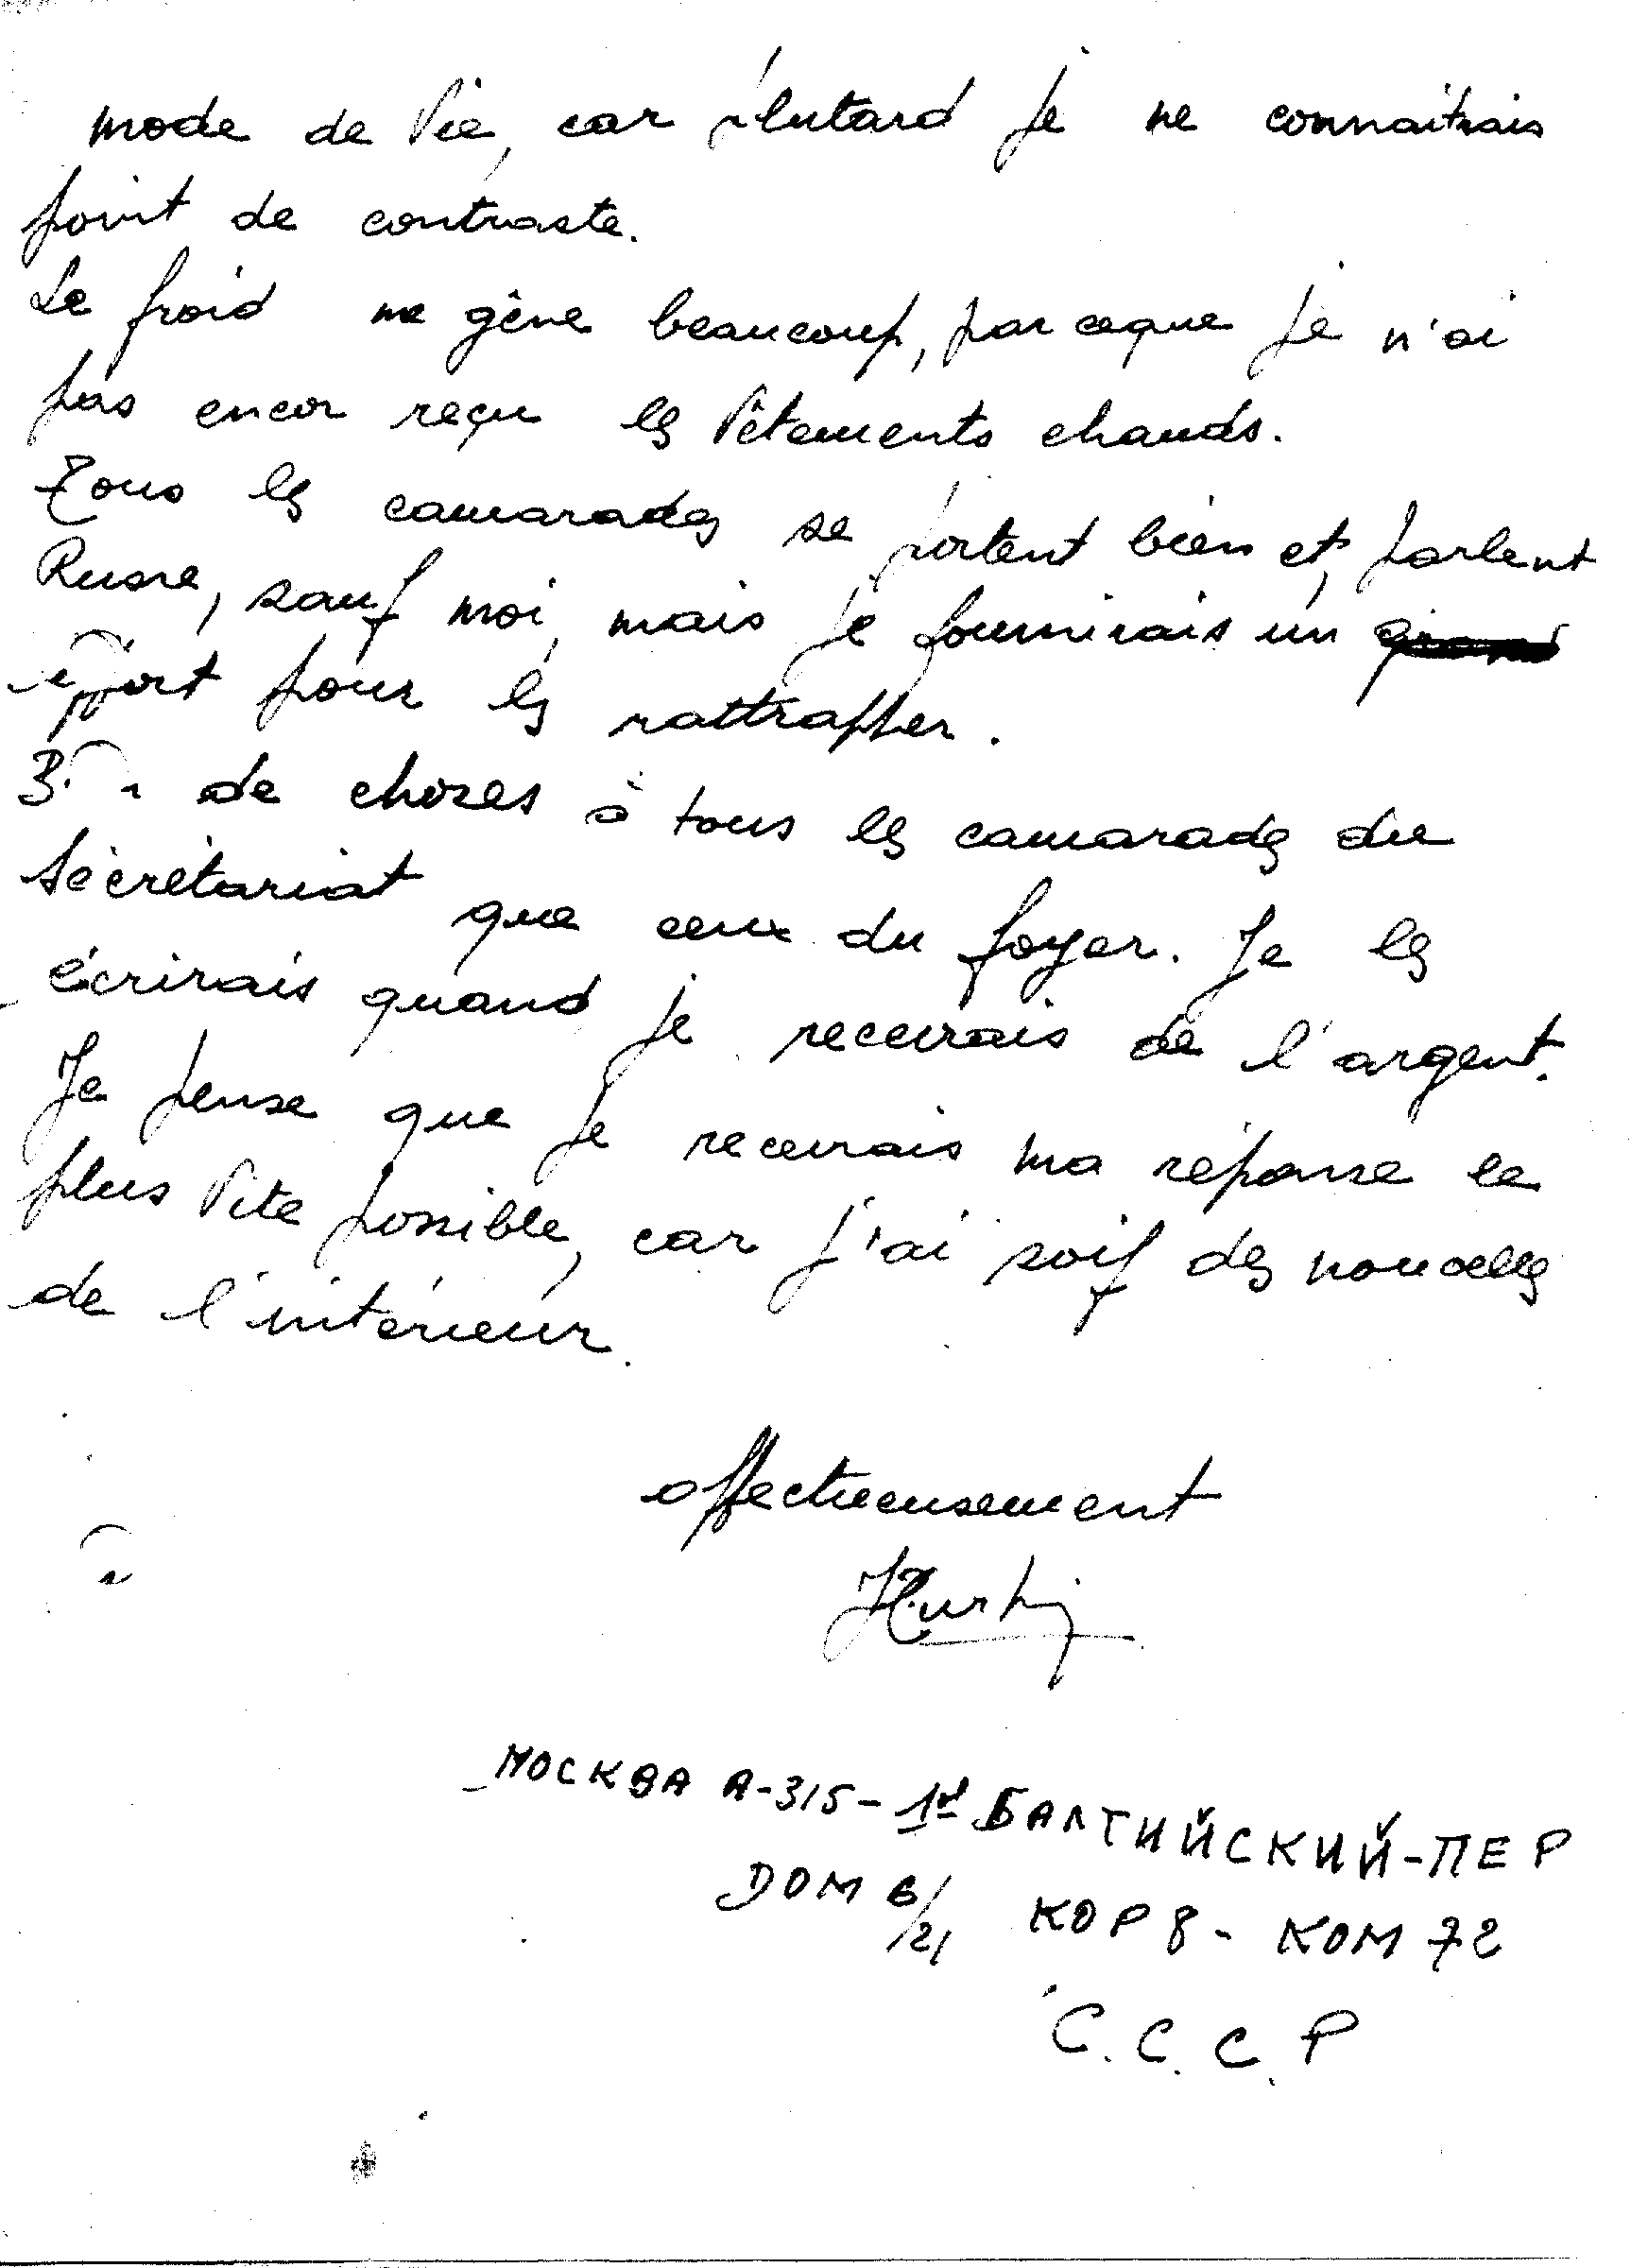 mode de Vie, car plutard je ne connaitrais
point de contraste.
Le froid me gêne beaucoup, parceque je n'ai
pas encor reçu les Vêtements chauds.
Tous les camarades se portent bien et, parlent
Russe, sauf moi, mais je fournirais un grand
effort pour les rattrapper.
de choses à tous les camarades du
Sécrétariat que ceux du foyer. Je les
écrirais quand je recevrais de l'argent.
Je pense que je recevrais ma réponse le
plus Vite possible, car j'ai soif des nouvelles
de l'intérieur.
affectueusement
МОСКВА А-315-1й БАЛТИЙСКИЙ-ПЕР
ДОМ 6/21 КОР 8 - КОМ 72
С.С.С.Р